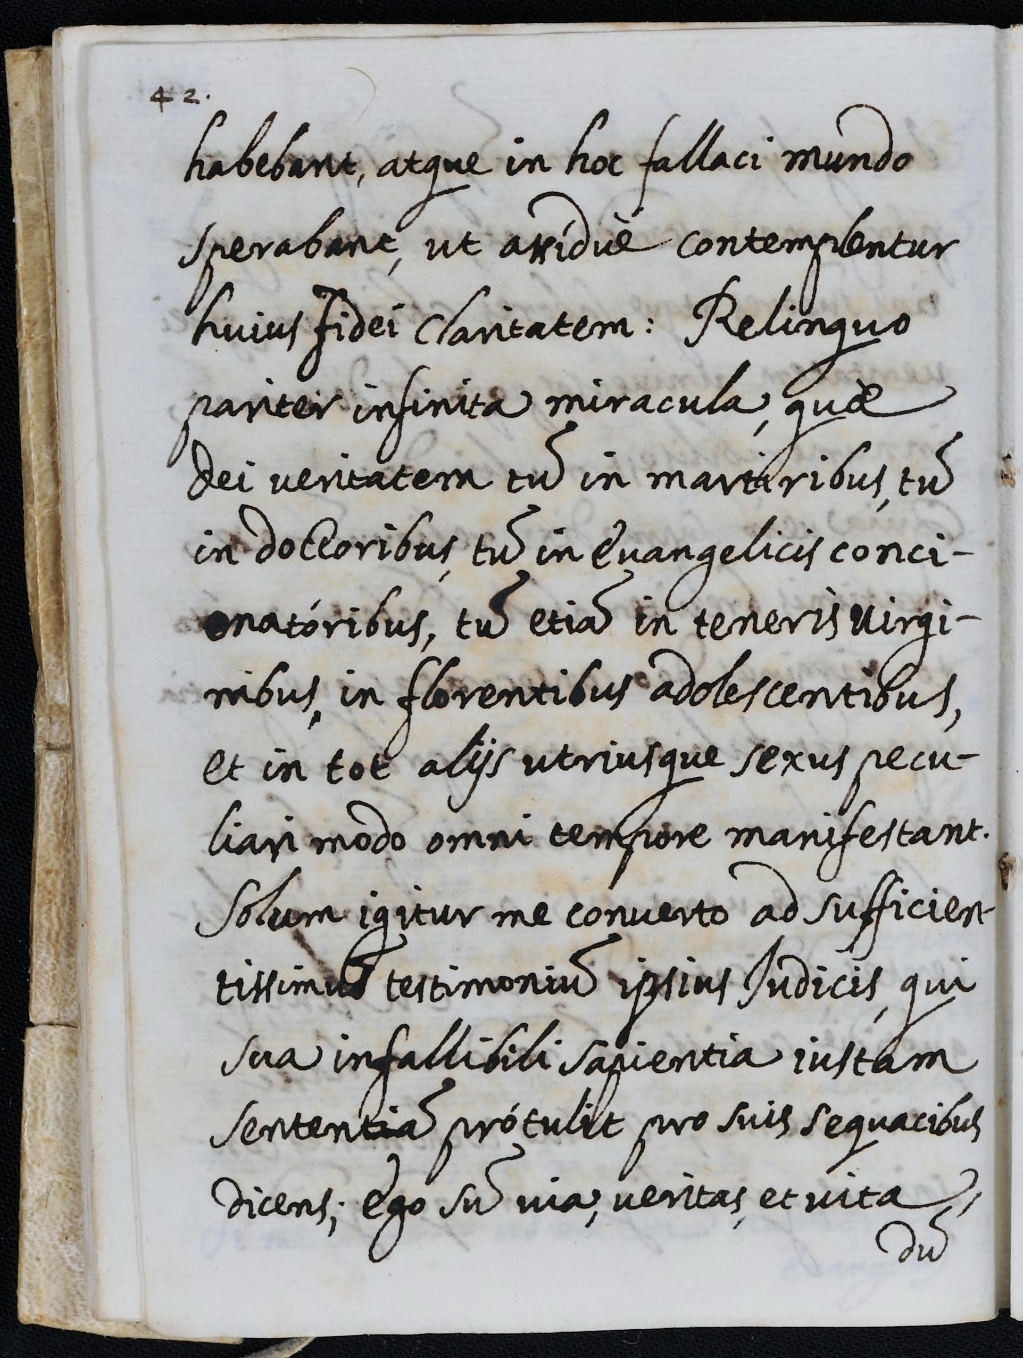 42.
habebant, atque in hoc fallaci mundo
sperabant, ut assiduè contemplentur
huius fidei claritatem: Relinquo
pariter infinita miracula, quæ
Dei veritatem tũ in martiribus, tũ
in doctoribus, tũ in Evangelicis conci-
onatóribus, tũ etiã in teneris Virgi-
nibus, in florentibus adolescentibus,
et in tot alijs utriusque sexus pecu-
liari modo omni tempore manifestant.
Solum igitur me converto ad sufficien-
tissimũ testimoniũ ipsius Iudicis, qui
sua infallibili sapientia iustam
sententiã prótulit pro suis sequacibus
dicens; Ego sũ via, veritas, et vita,
dũ